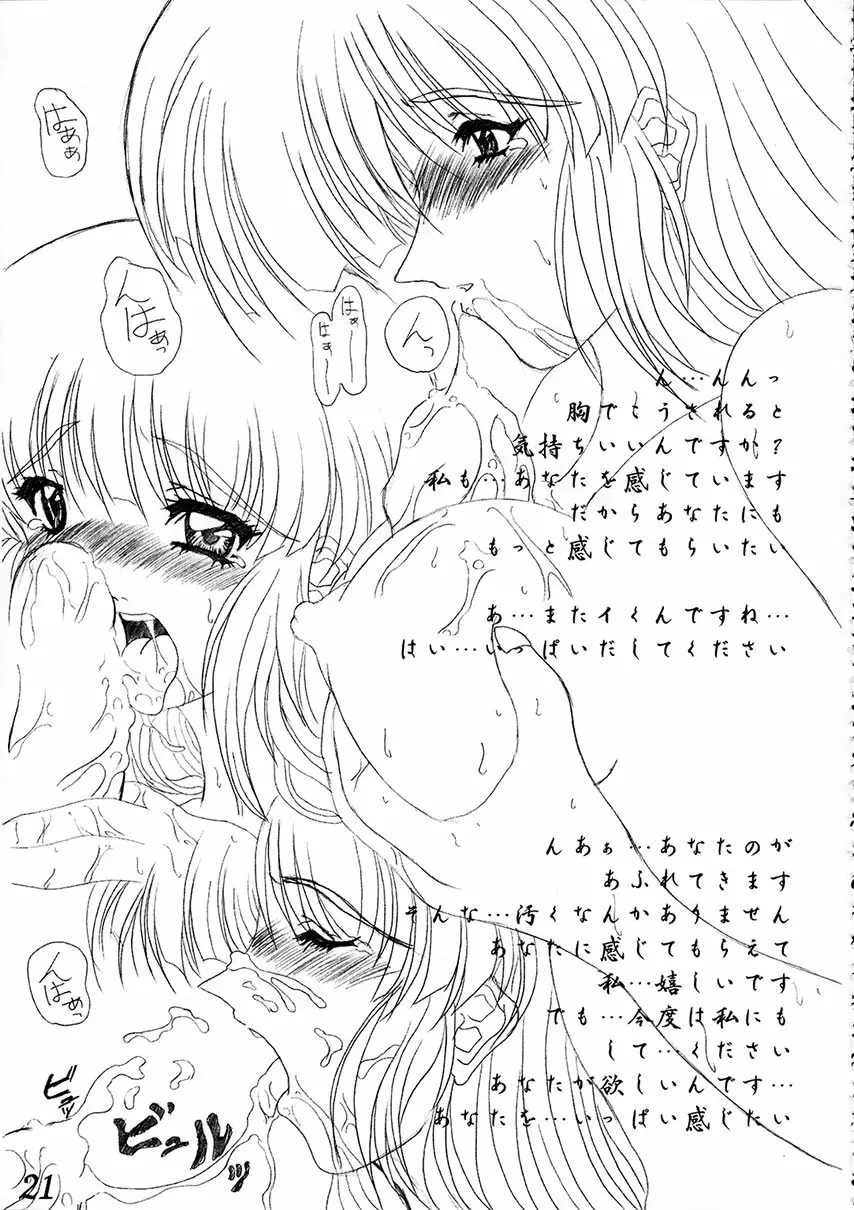 はぁぁ
んはぁっ
はぁーーっ
はぁーーっ
んっ
ん…んんっ
胸でこうされると
気持ちいいんですか?
私も…あなたを感じています
だからあなたにも
もっと感じてもらいたい
あ…またイくんですね…
はい…いっぱいだしてください
んあぁ…あなたのが
あふれてきます
そんな…汚くなんかありません
あなたに感じてもらえて
私…嬉しいです
でも…今度は私にも
して…ください
あなたが欲しいんです…
あなたを…いっぱい感じたい
んはぁっ
ビュッ
ビュルッ
21